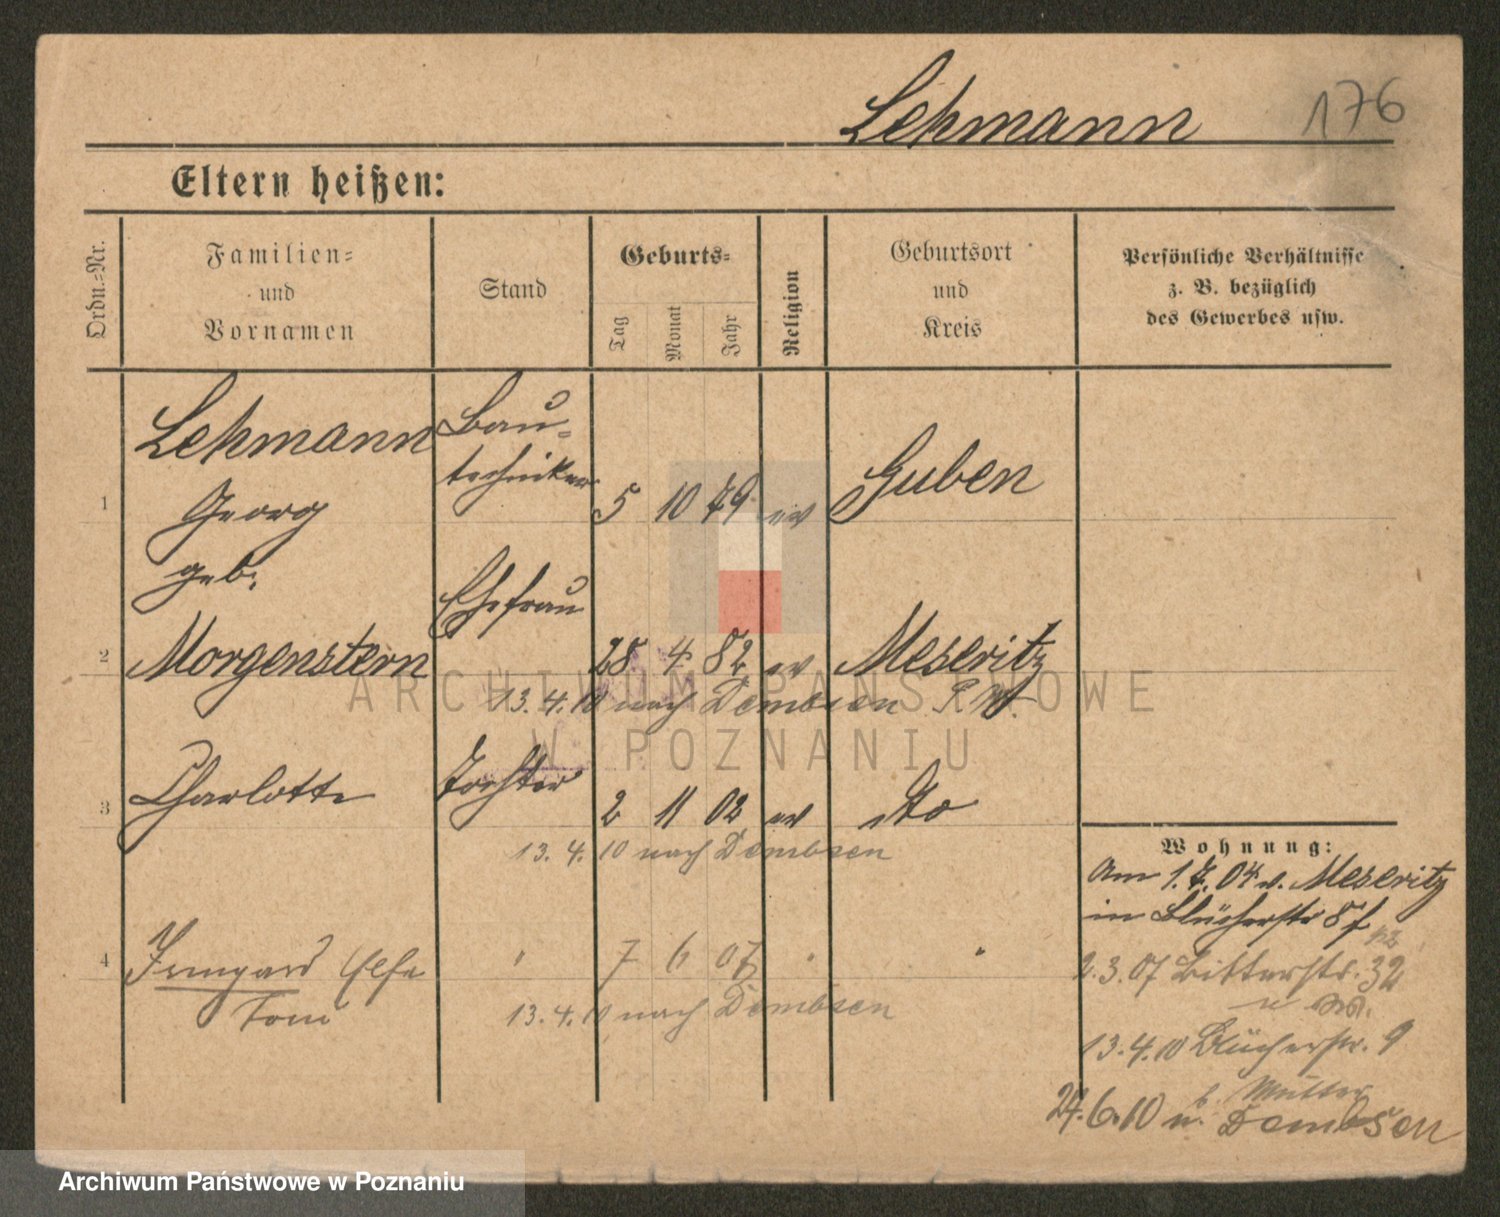 Lehmann 176
Eltern heißen:
Ordn.-Nr.
Familien-
und
Vornamen
Stand
Geburts-
Tag
Monat
Jahr
Religion
Geburtsort
und
Kreis
Persönliche Verhältnisse
z. B. bezüglich
des Gewerbes usw.
Lehmann Bau-
techniker
1 Georg 5 10 79 ev Guben
geb. Ehefrau
2 Morgenstern 28 4 82 ev Meseritz
13.4.10 nach Dembsen P. W.
3 Charlotte Tochter 2 11 02 ev dto
13.4.10 nach Dembsen
4 Irmgard Else " 7 6 07 " "
Toni 13.4.10 nach Dembsen
Wohnung:
Am 1.7.04 v. Meseritz
in Blücherstr 8f
2.3.07 Ritterstr. 32
13.4.10 Blücherstr. 9
b. Mutter
24.6.10 n. Dembsen
ARCHIWUM PAŃSTWOWE
W POZNANIU
Archiwum Państwowe w Poznaniu